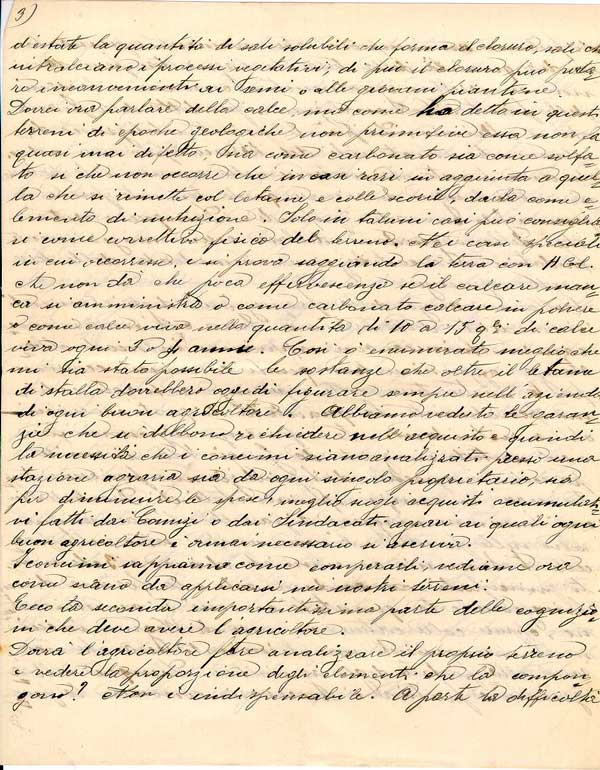 3)
d'estate la quantità di sali solubili che forma il cloruro, sali che
intralciano i processi vegetativi; di più il cloruro può porta-
re inconvenienti ai semi o alle giovani piantine.
Dovrei ora parlare della calce, ma come ho detto in questi
terreni di epoche geologiche non primitive essa non fa
quasi mai difetto sia come carbonato sia come solfa-
to si che non occorre che in casi rari in aggiunta a quel-
la che si rimette col letame e colle scorie, darla come e-
lemento di nutrizione. Solo in taluni casi può consigliar-
si come correttivo fisico del terreno. Nei casi speciali
in cui occorresse e si prova saggiando la terra con HCl.
che non dà che poca effervescenza se il calcare man-
ca si amministra o come carbonato calcare in polvere
o come calce viva nella quantità di 10 a 15 qli di calce
viva ogni 3 o 4 anni. Così ò enumerato meglio che
mi sia stato possibile le sostanze che oltre il letame
di stalla dovrebbero oggidì figurare sempre nell'azienda
di ogni buon agricoltore. Abbiamo veduto le garan-
zie che si debbono richiedere nell'acquisto e quindi
la necessità che i concimi siano analizzati presso una
stazione agraria sia da ogni singolo proprietario, sia
per diminuire le spese, meglio negli acquisti accumulati-
vi fatti dai Comizi o dai Sindacati agrari ai quali ogni
buon agricoltore è ormai necessario si ascriva.
I concimi sappiamo come comperarli, vediamo ora
come siano da applicarsi nei nostri terreni.
Ecco la seconda importantissima parte delle cognizio-
ni che deve avere l'agricoltore.
Dovrà l'agricoltore fare analizzare il proprio terreno
e vedere la proporzione degli elementi che la compon-
gono? Non è indispensabile. A parte la difficoltà